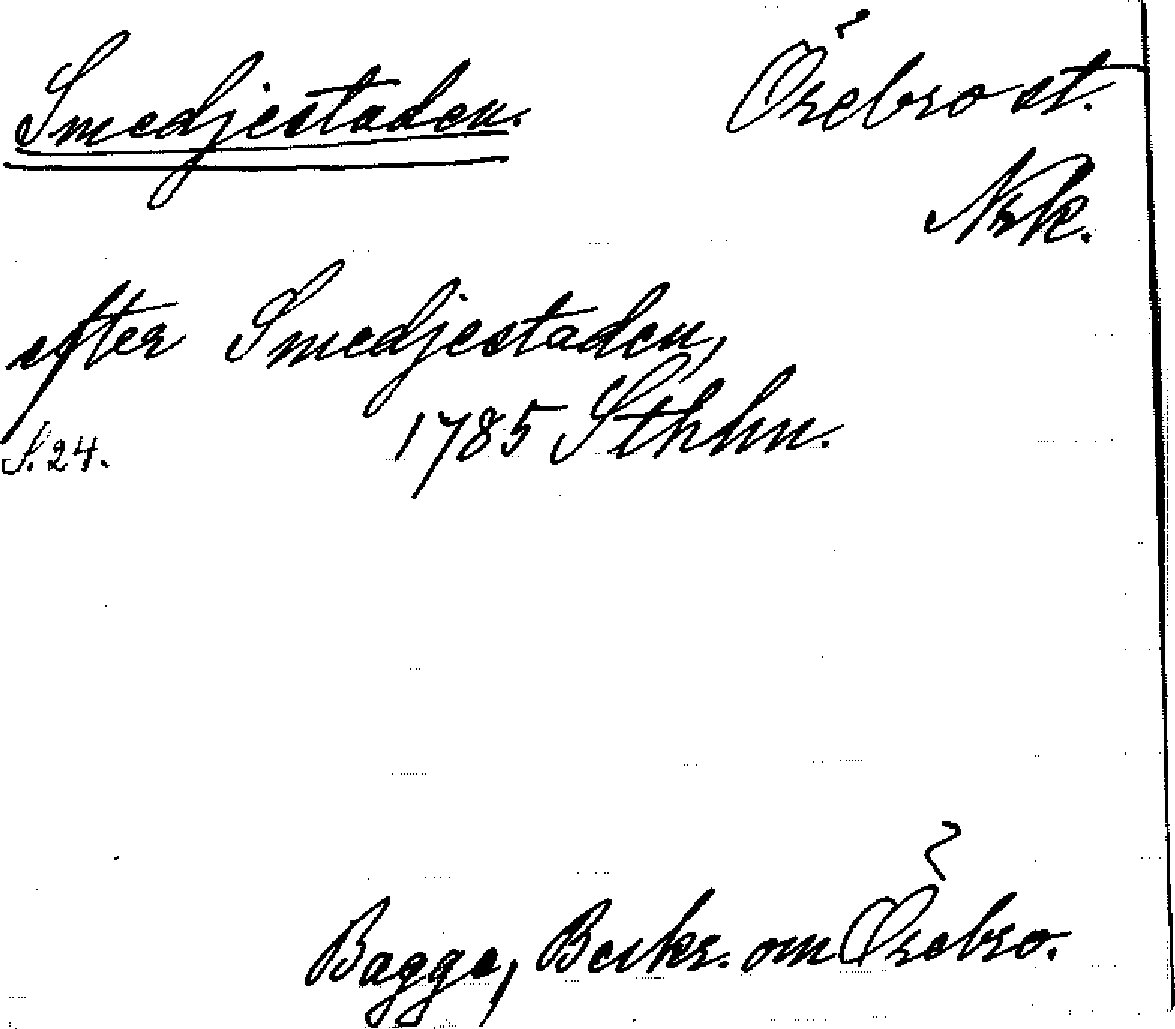 Smedjestaden. Örebro st.
Nrk.
efter Smedjestaden,
S. 24. 1785 Sthhn.
Bagge, Beskr. om Örebro.